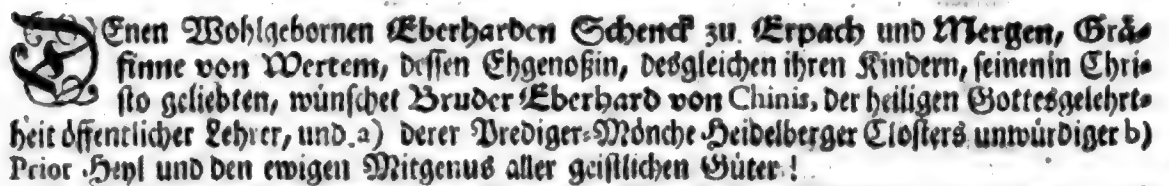 DEnen Wohlgebornen Eberharden Schenck zu Erpach und Mergen, Grä-
finne von Wertem, dessen Ehgenoßin, desgleichen ihren Kindern, seinen in Chri-
sto geliebten, wünschet Bruder Eberhard von Chinis, der heiligen Gottesgelehrt-
heit öffentlicher Lehrer, und a) derer Prediger-Mönche Heidelberger Closters unwürdiger b)
Prior Heyl und den ewigen Mitgenus aller geistlichen Güter!